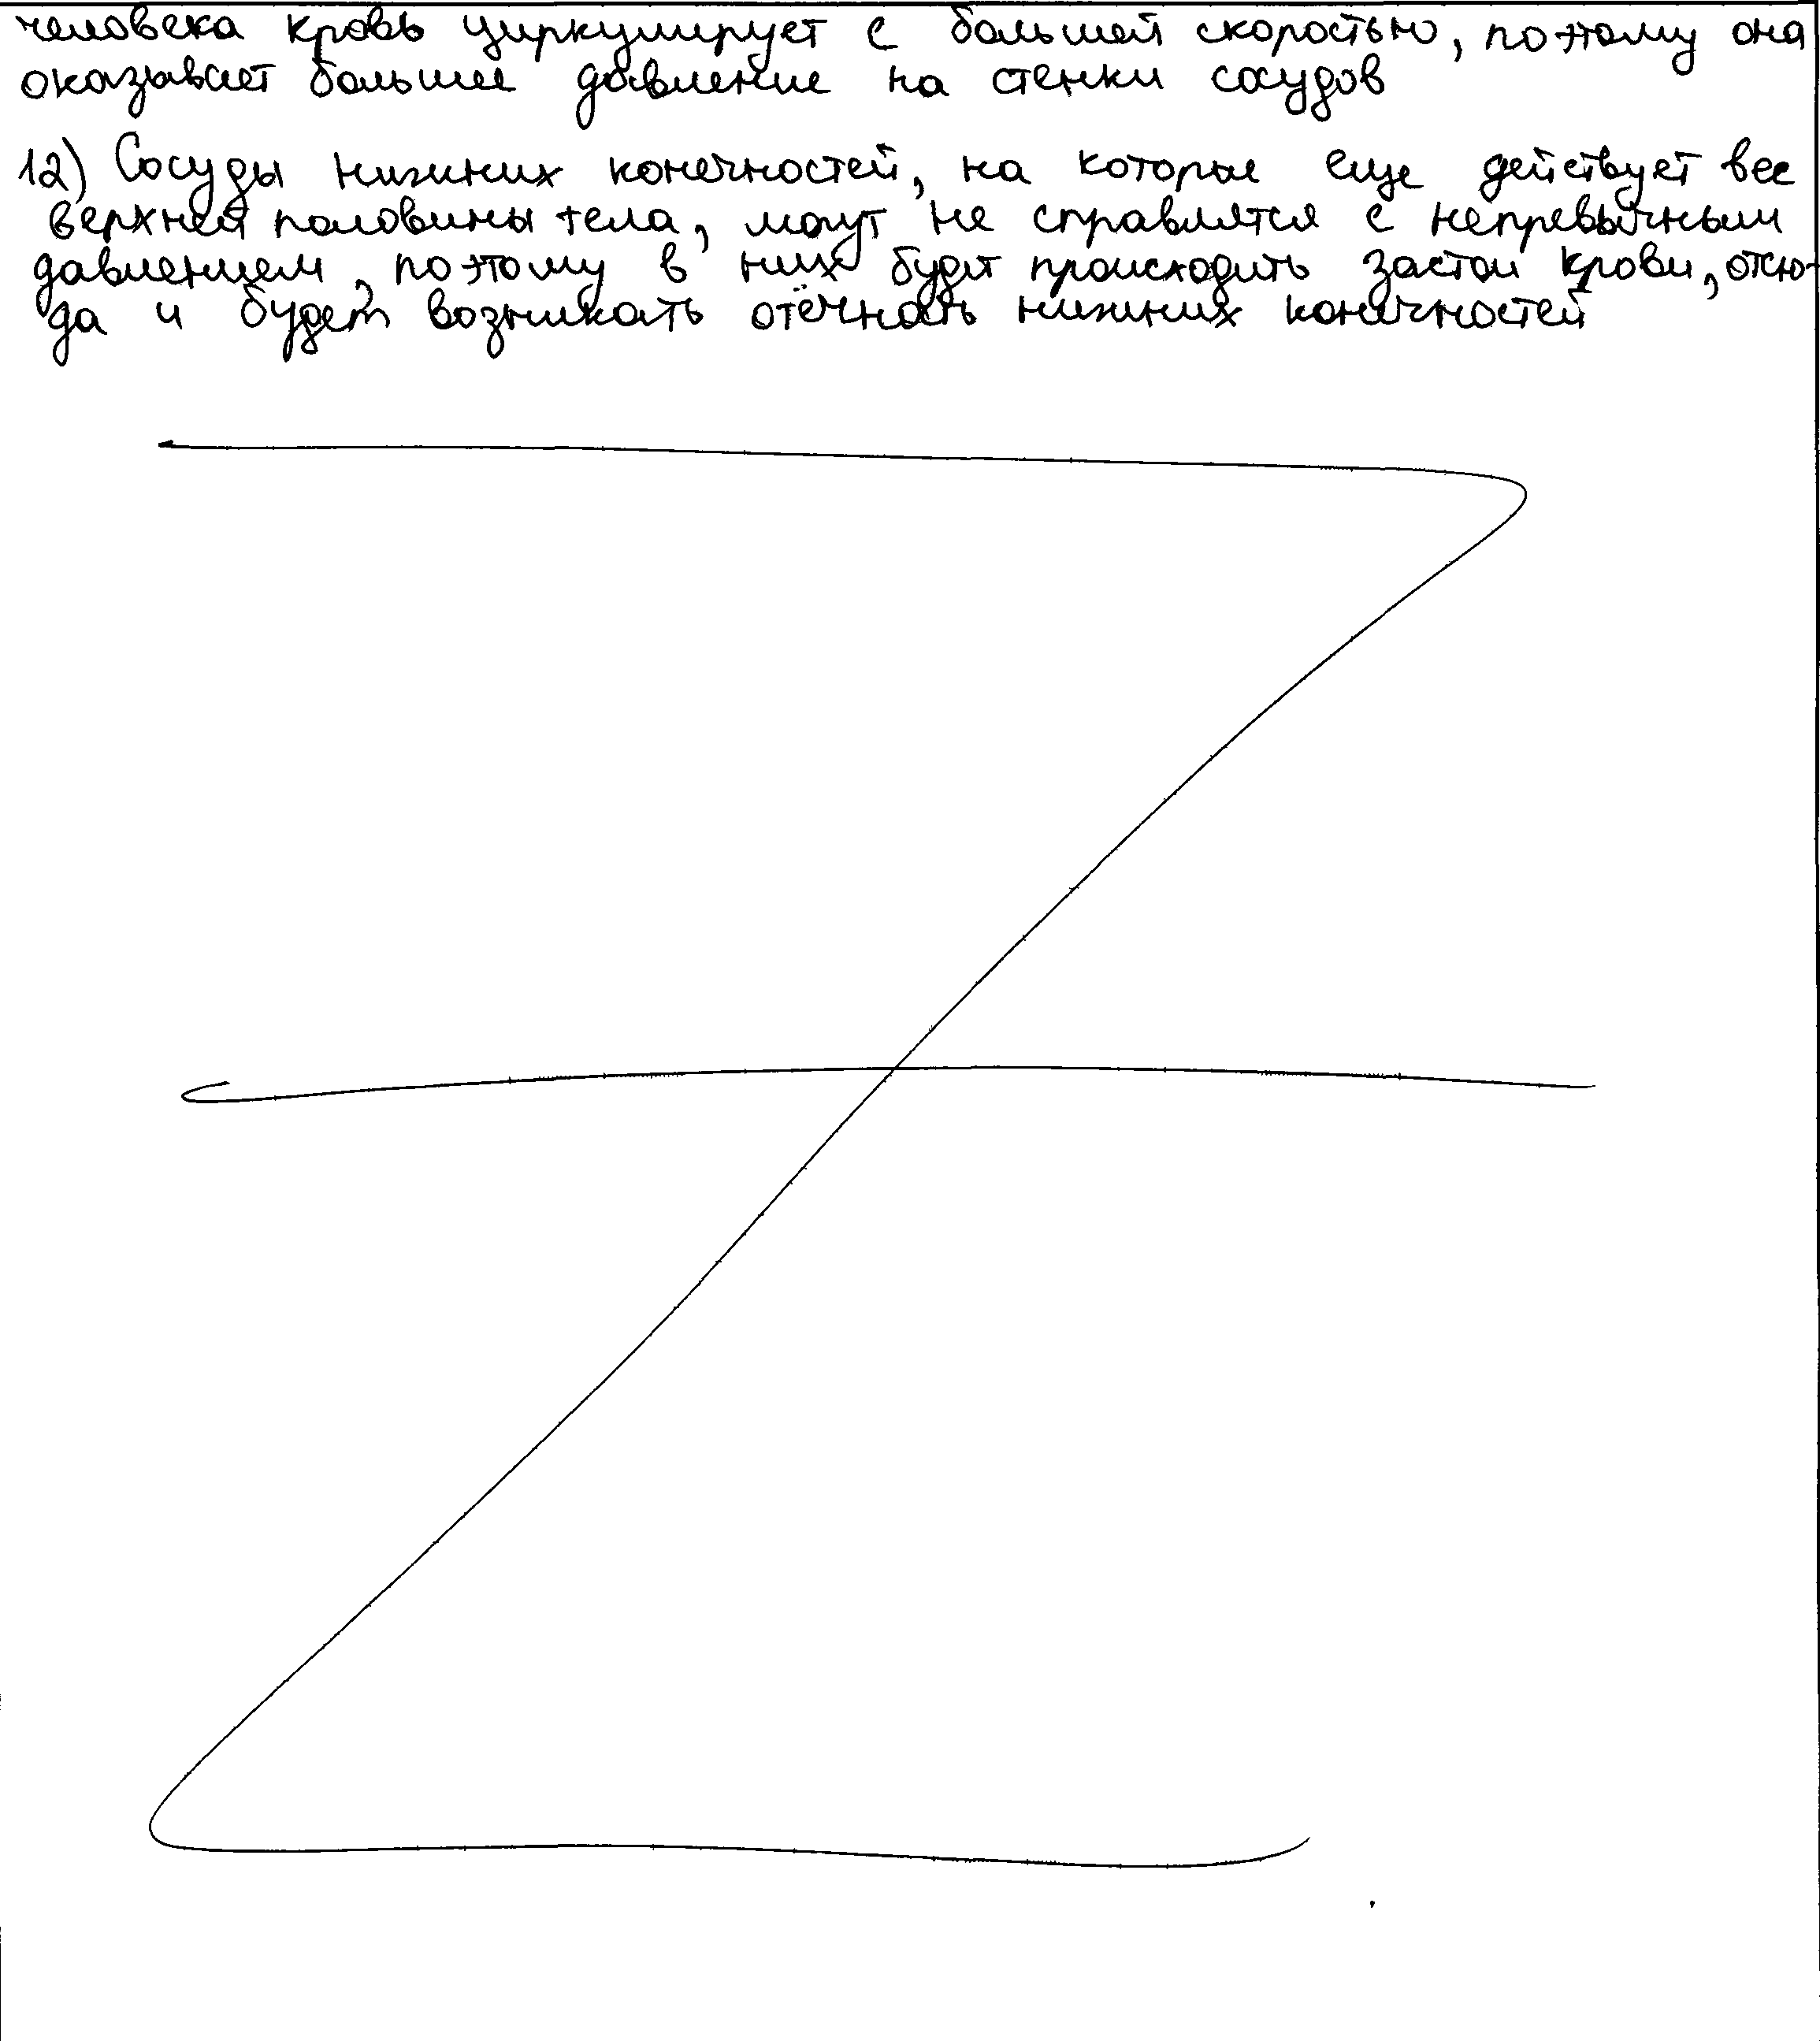 человека кровь циркулирует с большей скоростью, поэтому она
оказывает большее давление на стенки сосудов
12) Сосуды нижних конечностей, на которые еще действует вес
верхней половины тела, могут не справлятся с непревычным
давлением, поэтому в них будет происходить застои крови, отсю-
да и будет возникать отёчность нижних конечностей